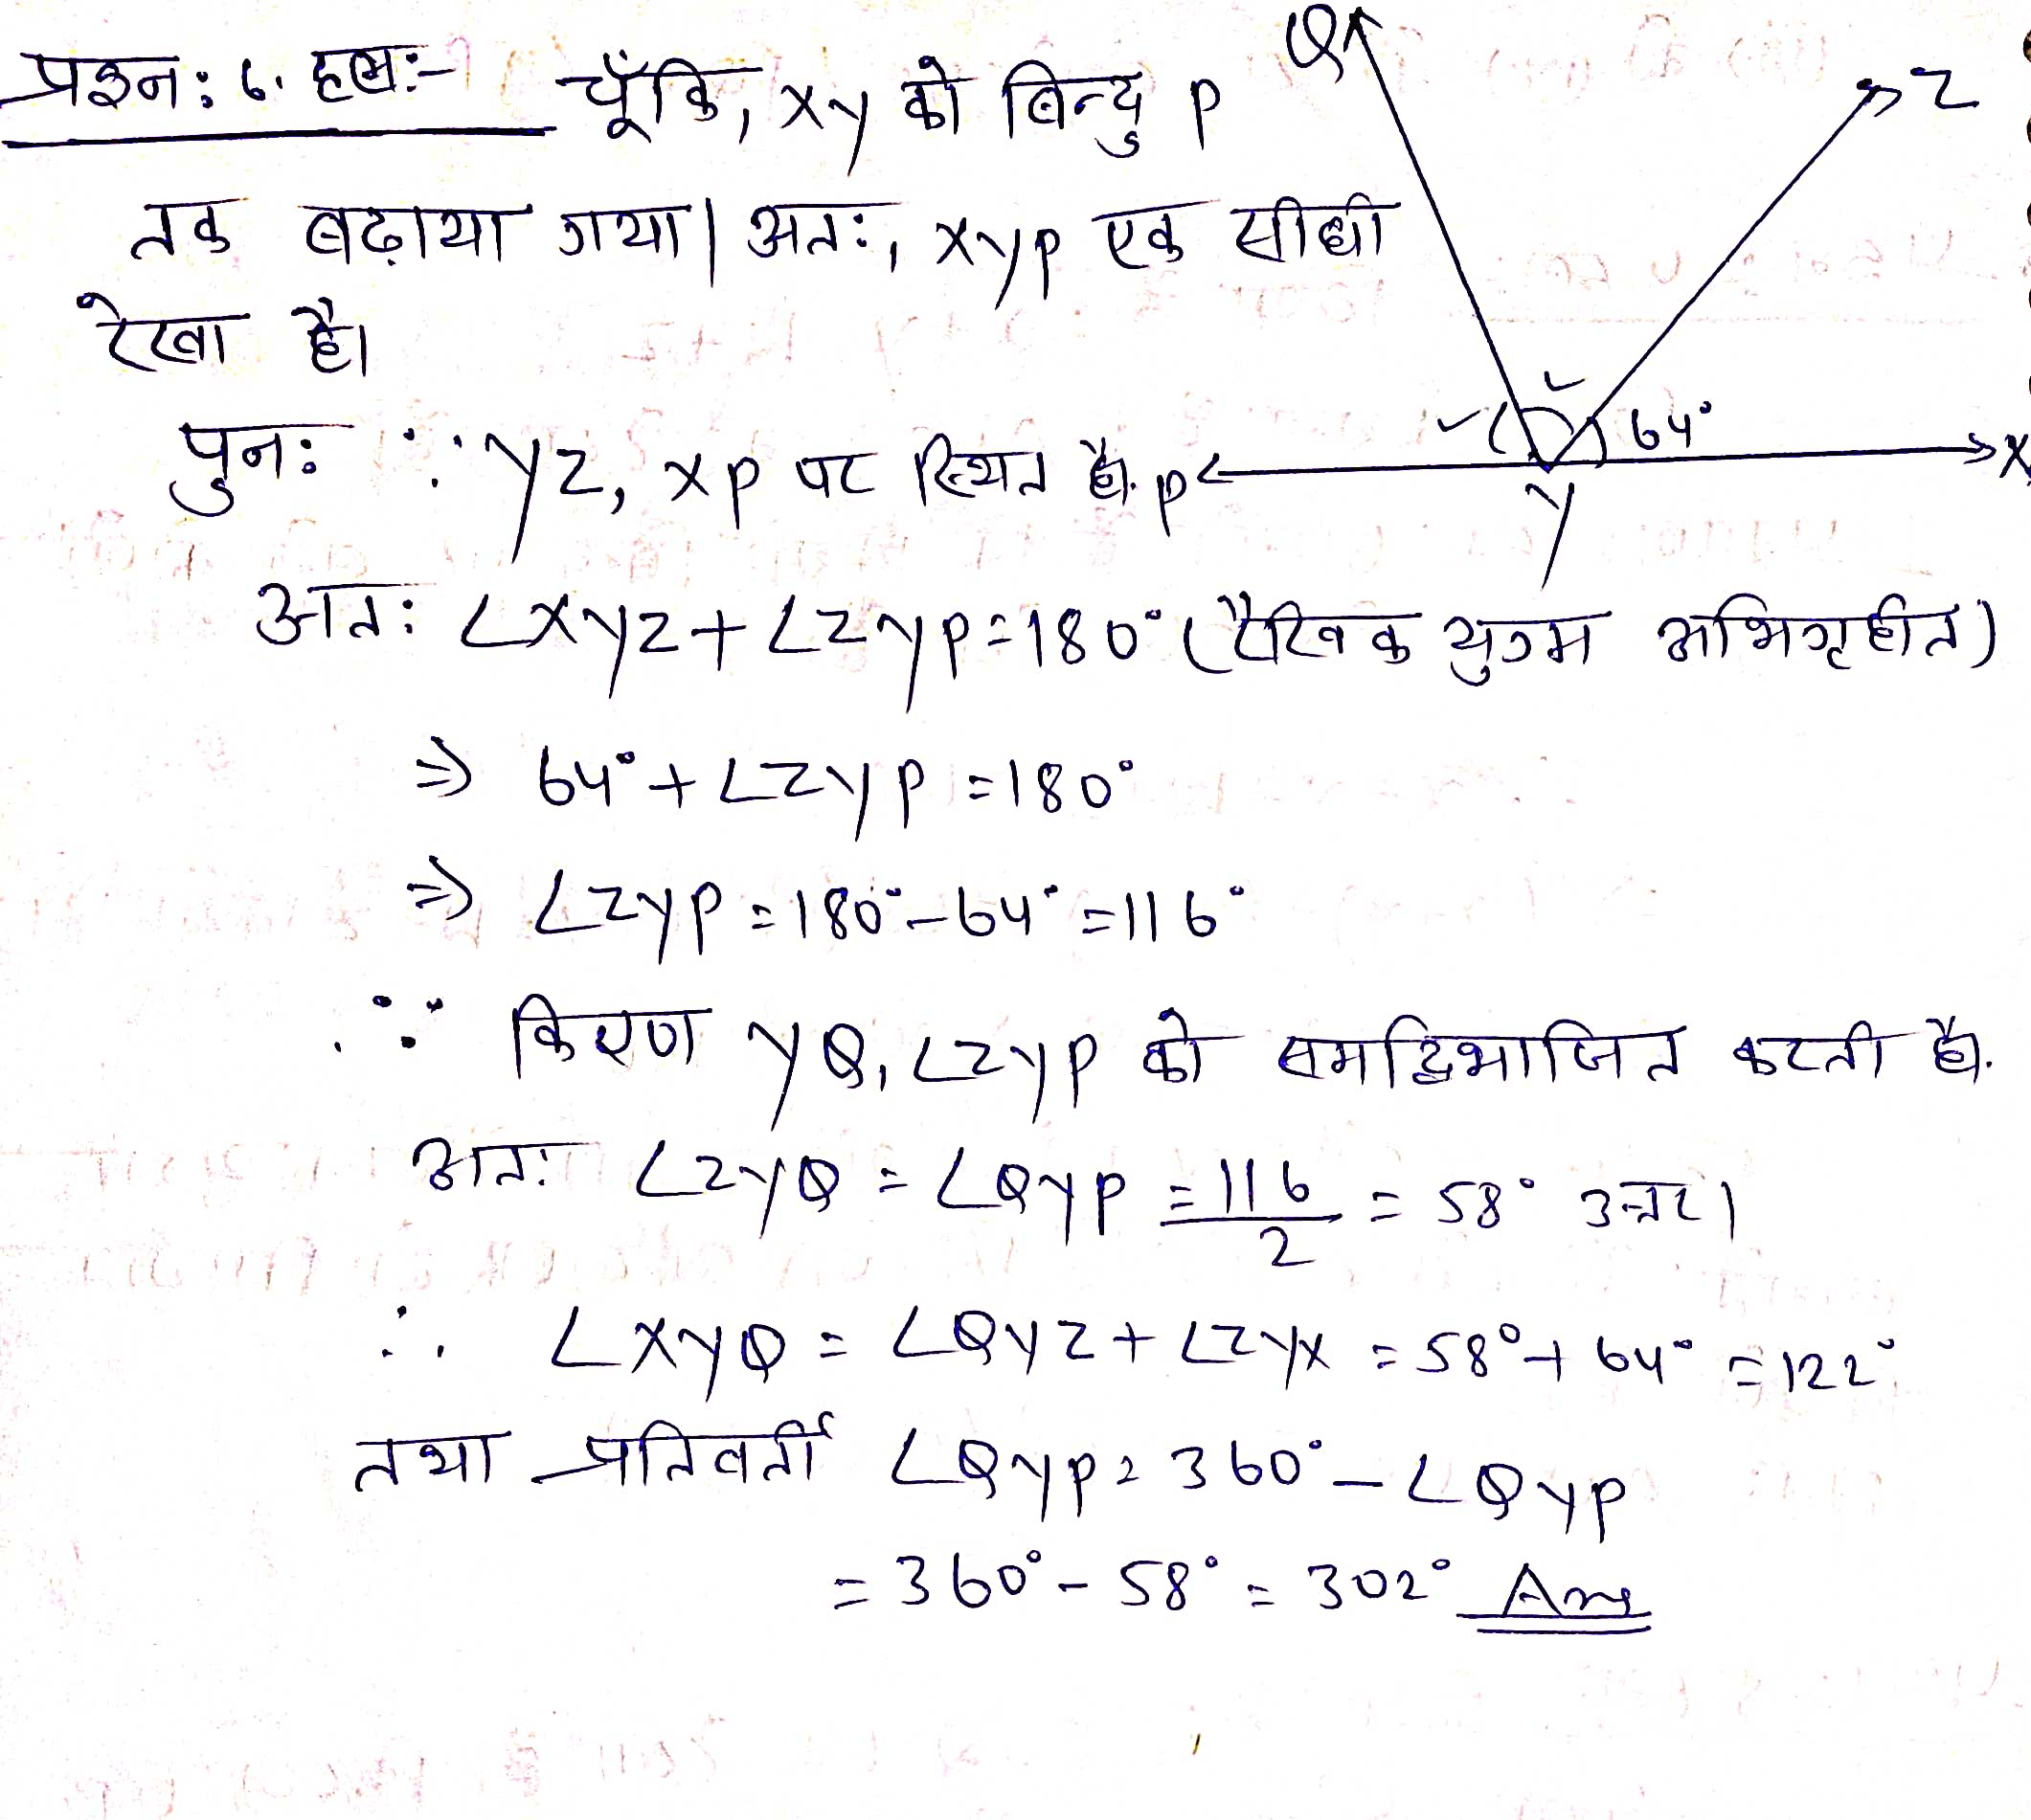 प्रश्न: 6. हल:- चूँकि, XY को बिन्दु P
तक बढ़ाया गया। अतः, XYP एक सीधी
रेखा है।
पुनः ∵ YZ, XP पर स्थित है.
Q
Z
64°
P
X
Y
अतः ∠XYZ + ∠ZYP = 180° (रैखिक युग्म अभिगृहीत)
⇒ 64° + ∠ZYP = 180°
⇒ ∠ZYP = 180° - 64° = 116°
∵ किरण YQ, ∠ZYP को समद्विभाजित करती है.
अतः ∠ZYQ = ∠QYP = 116/2 = 58° उत्तर।
∴ ∠XYQ = ∠QYZ + ∠ZYX = 58° + 64° = 122°
तथा प्रतिवर्ती ∠QYP = 360° - ∠QYP
= 360° - 58° = 302° Ans